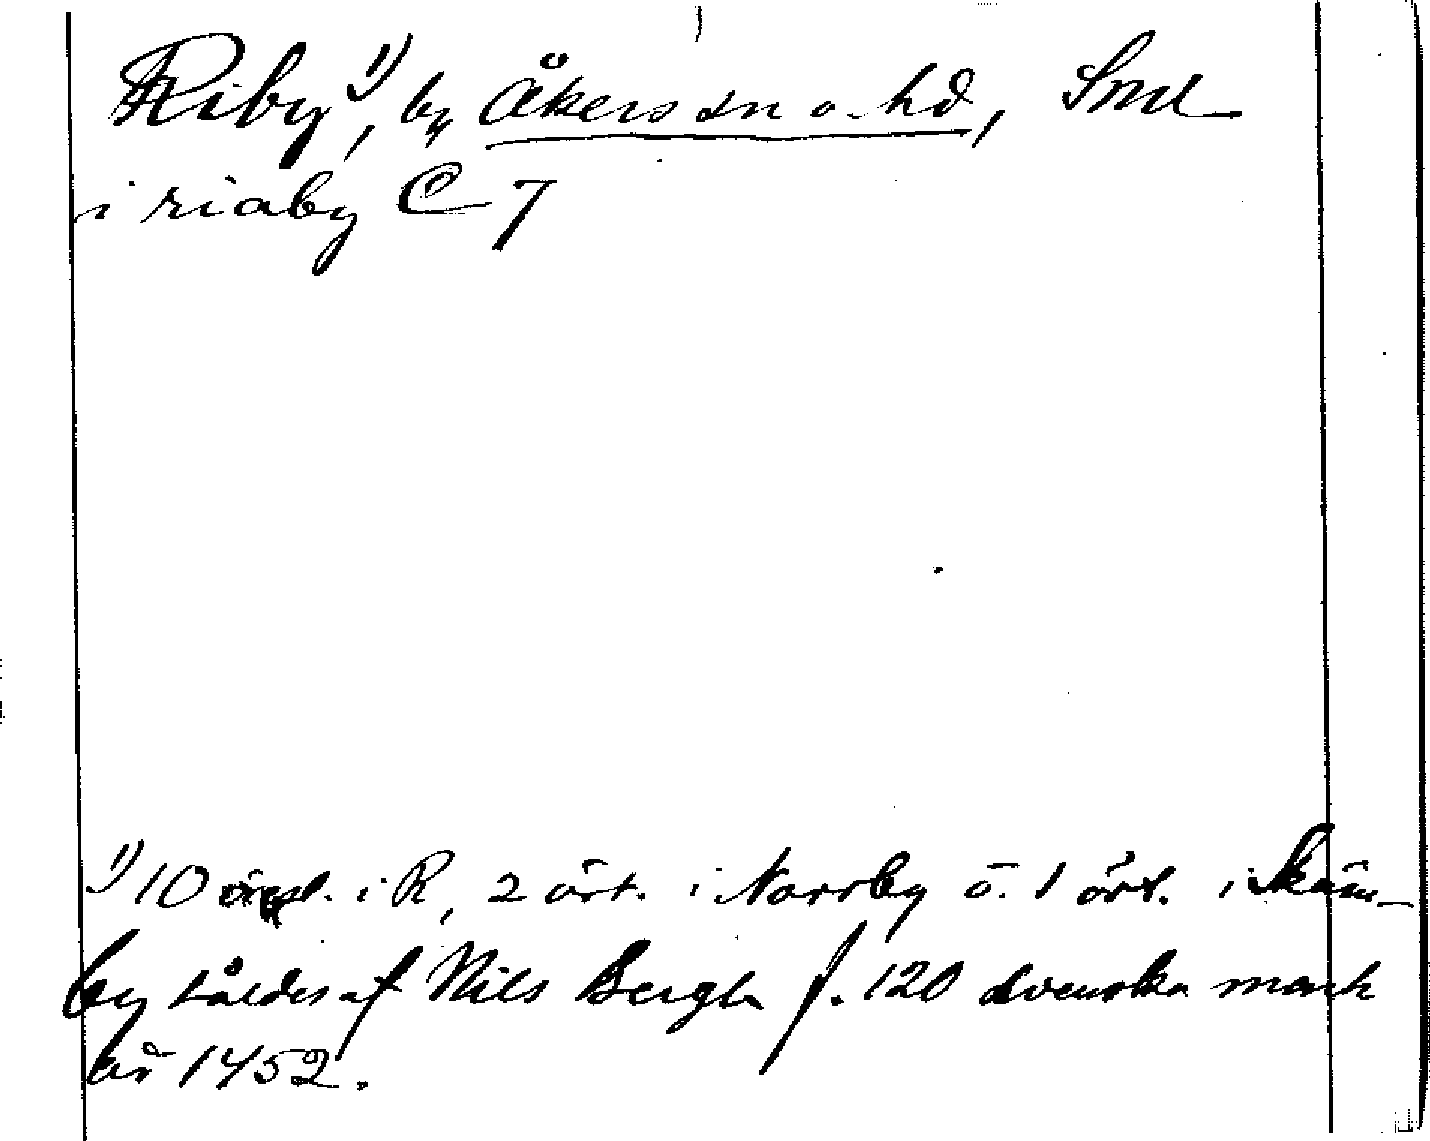 Riby¹⁾, by Åkers sn o. hd, Sml
i riaby C 7
¹⁾ 10 öresl. i R, 2 ört. i Norrby o. 1 ört. i Skäm-
by såldes af Nils Bergh f. 120 svenska mark
år 1452.